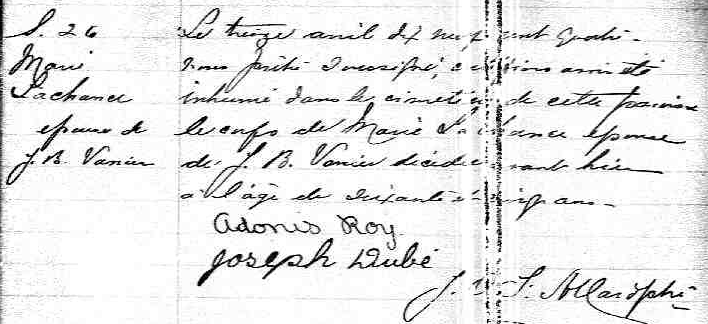 S. 26
Marie
Lachance
epouse de
J. B. Vanier
Le treize avril dix neuf cent quatre -
nous prêtre soussigné, avons
inhumé dans le cimetière de cette paroisse
le corps de Marie Lachance epouse
de J. B. Vanier décédée avant hier
à l'âge de soixante cinq ans -
Adonis Roy
Joseph Dubé
J. Allard ptre